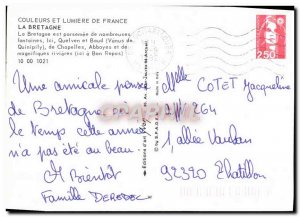 COULEURS ET LUMIERE DE FRANCE
LA BRETAGNE
La Bretagne est parsemée de nombreuses
fontaines, ici, Quelven et Baud (Vénus de
Quinipily), de Chapelles, Abbayes et de
magnifiques rivières (ici à Bon Repos)
10 00 1021
Une amicale pensée
de Bretagne
le temps cette année
n'a pas été au beau.
Bientôt
Famille
2,50
Mlle COTET Jacqueline
264
1 allée Vauban
92320 Chatillon